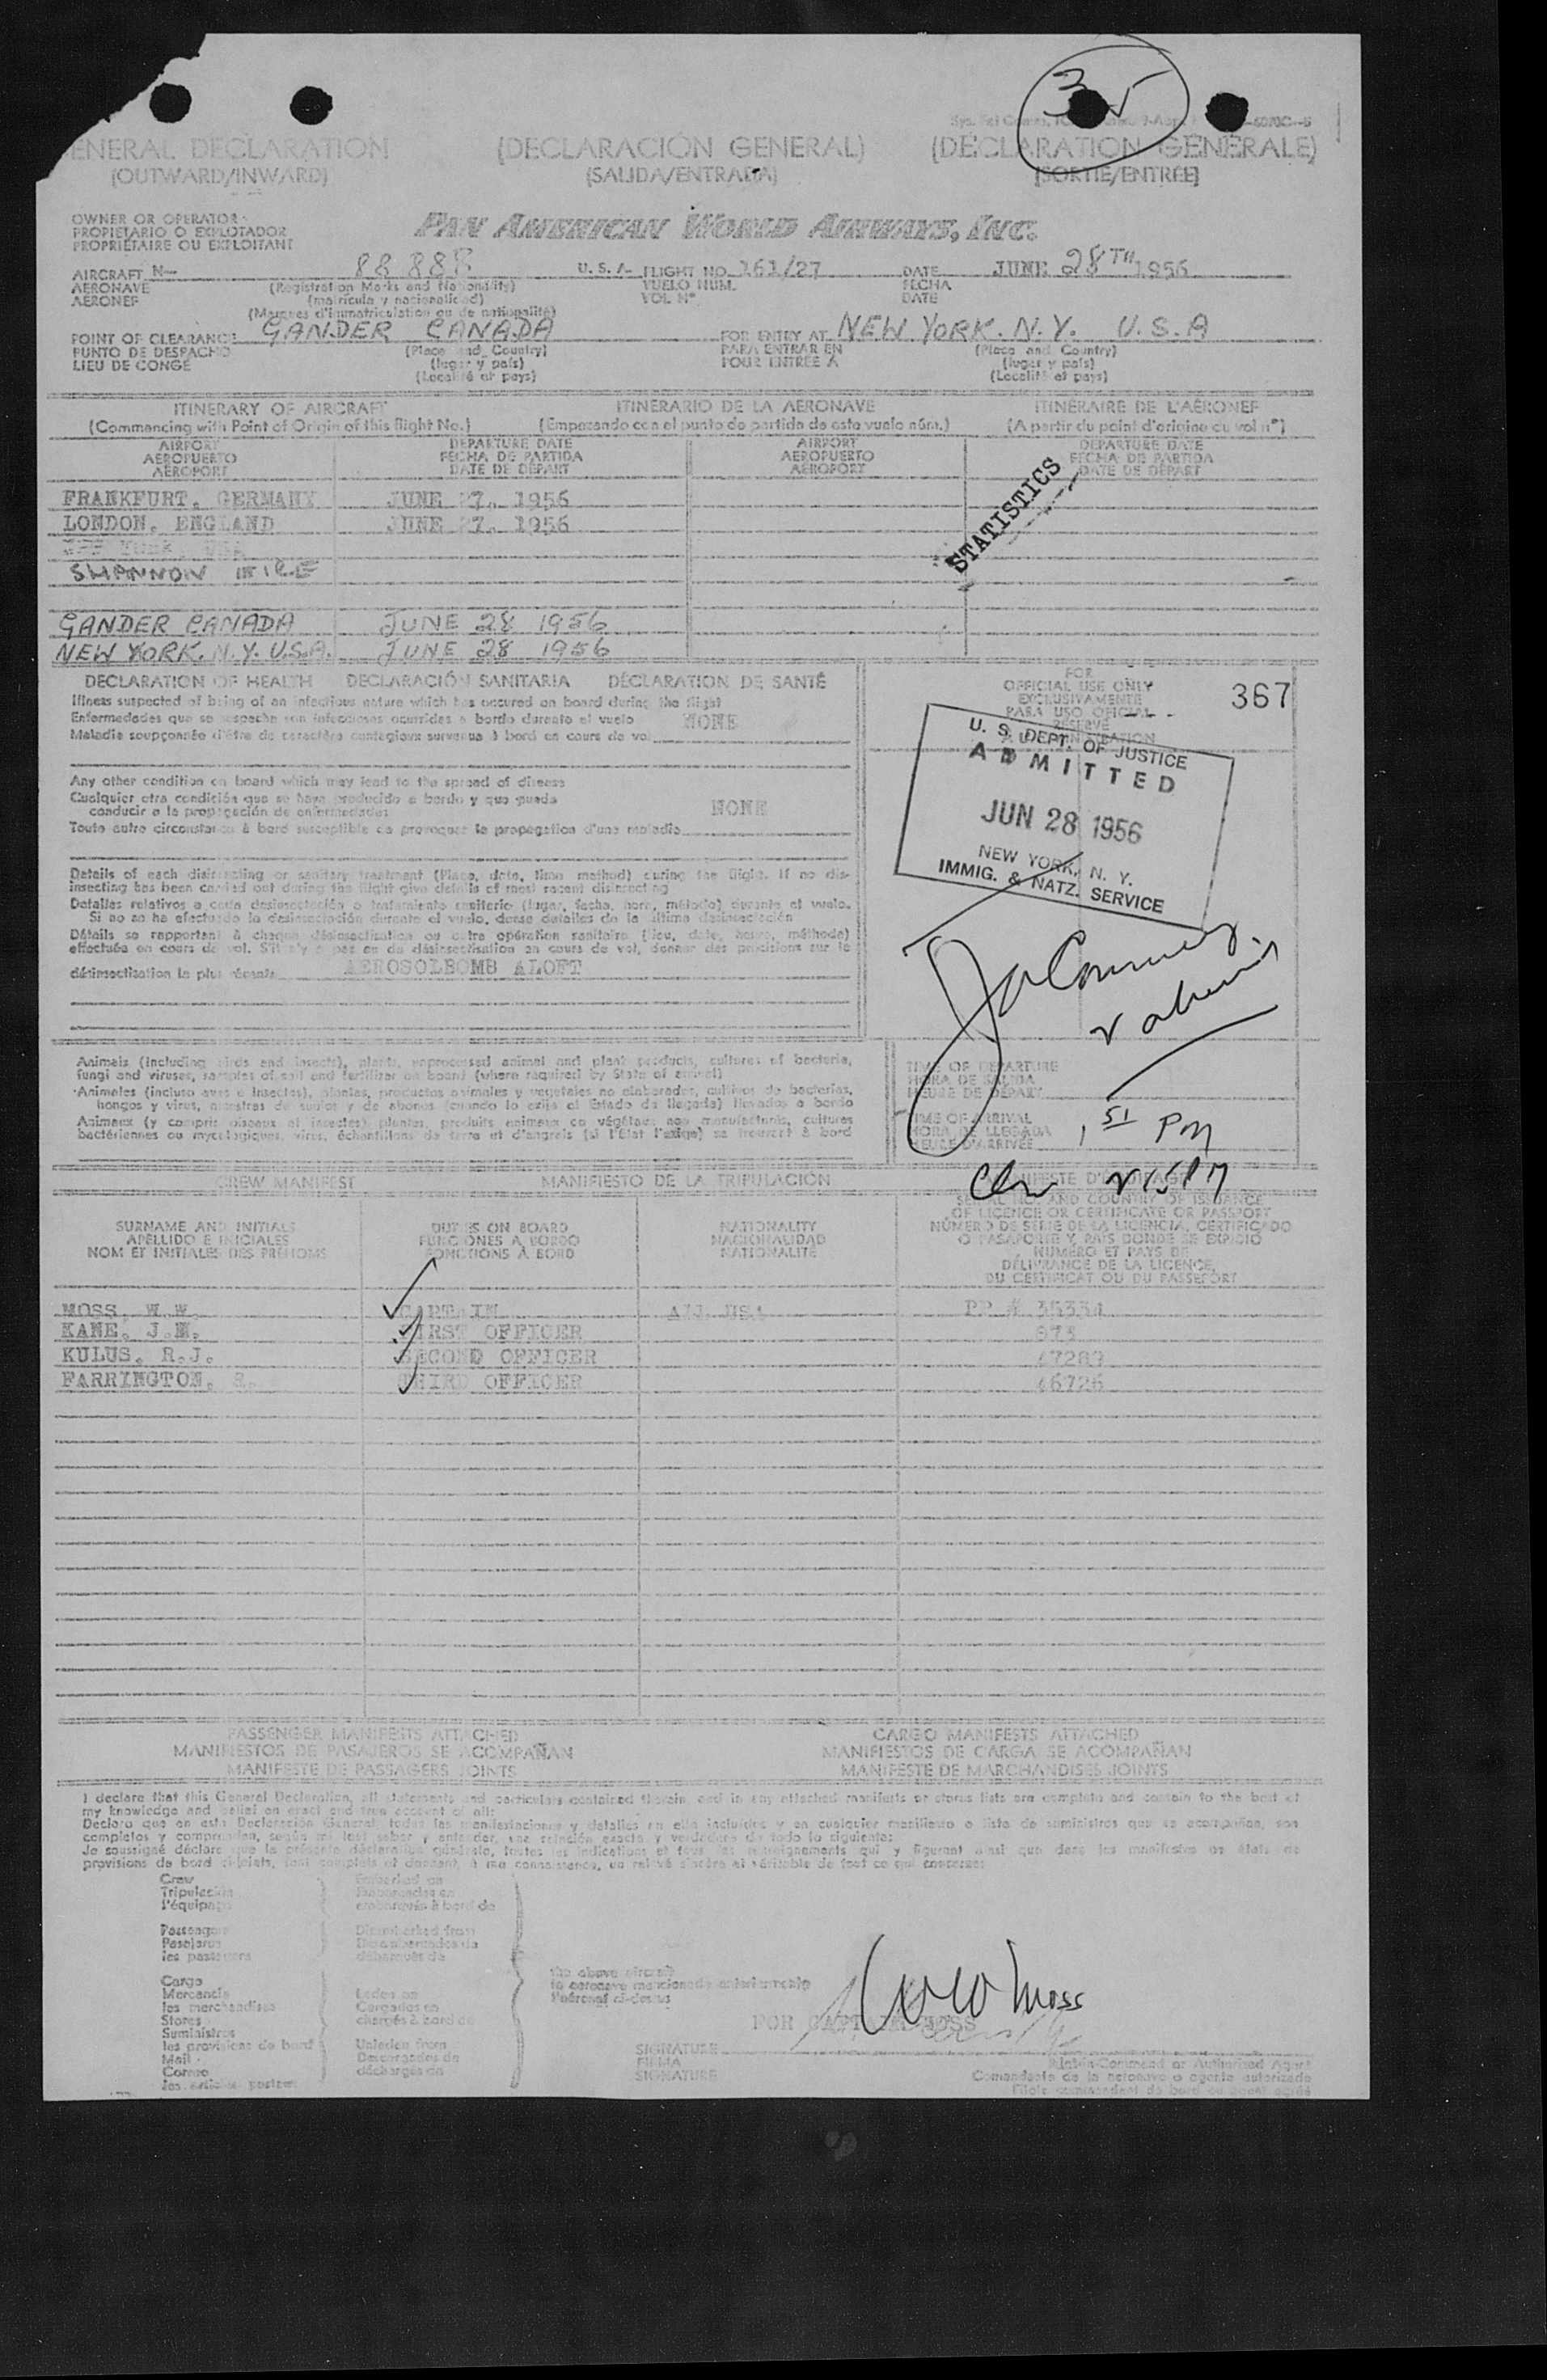 35
GENERAL DECLARATION (DECLARACIÓN GENERAL) (DÉCLARATION GÉNÉRALE)
(OUTWARD/INWARD) (SALIDA/ENTRADA) (SORTIE/ENTRÉE)
OWNER OR OPERATOR
PROPIETARIO O EXPLOTADOR
PROPRIÉTAIRE OU EXPLOITANT
PAN AMERICAN WORLD AIRWAYS, INC.
AIRCRAFT N— U.S.A. FLIGHT NO. 161/27 DATE JUNE 28TH 1956
AERONAVE (Registration Marks and Nationality) VUELO NUM. FECHA
AÉRONEF (matrícula y nacionalidad) VOL N° DATE
(Marques d'immatriculation ou de nationalité)
POINT OF CLEARANCE GANDER CANADA FOR ENTRY AT NEW YORK. N.Y. U.S.A
PUNTO DE DESPACHO (Place and Country) PARA ENTRAR EN (Place and Country)
LIEU DE CONGÉ (lugar y país) POUR ENTRÉE À (lugar y país)
(Localité et pays) (Localité et pays)
ITINERARY OF AIRCRAFT ITINERARIO DE LA AERONAVE ITINÉRAIRE DE L'AÉRONEF
(Commencing with Point of Origin of this flight No.) (Empezando con el punto de partida de este vuelo núm.) (A partir du point d'origine du vol n°)
AIRPORT DEPARTURE DATE AIRPORT DEPARTURE DATE
AEROPUERTO FECHA DE PARTIDA AEROPUERTO FECHA DE PARTIDA
AÉROPORT DATE DE DÉPART AÉROPORT DATE DE DÉPART
FRANKFURT, GERMANY JUNE 27, 1956
LONDON, ENGLAND JUNE 27, 1956
STATISTICS
SHANNON EIRE
GANDER CANADA JUNE 28 1956
NEW YORK. N.Y. U.S.A. JUNE 28 1956
DECLARATION OF HEALTH DECLARACIÓN SANITARIA DÉCLARATION DE SANTÉ
Illness suspected of being of an infectious nature which has occured on board during the flight
Enfermedades que se sospecha son infecciosas ocurridas a bordo durante el vuelo NONE
Maladie soupçonnée d'être de caractère contagieux survenue à bord en cours de vol
FOR
OFFICIAL USE ONLY
EXCLUSIVAMENTE
PARA USO OFICIAL
RÉSERVÉ
367
U. S. DEPT. OF JUSTICE
ADMITTED
JUN 28 1956
NEW YORK, N. Y.
IMMIG. & NATZ. SERVICE
Any other condition on board which may lead to the spread of disease
Cualquier otra condición que se haya producido a bordo y que pueda
conducir a la propagación de enfermedades NONE
Toute autre circonstance à bord susceptible de provoquer la propagation d'une maladie
Details of each disinsecting or sanitary treatment (Place, date, time method) during the flight. If no dis-
insecting has been carried out during the flight give details of most recent disinsecting
Detalles relativos a cada desinsectación o tratamiento sanitario (lugar, fecha, hora, método) durante el vuelo.
Si no se ha efectuado la desinsectación durante el vuelo, dense detalles de la última desinsectación
Détails se rapportant à chaque désinsectisation ou autre opération sanitaire (lieu, date, heure, méthode)
effectuée en cours de vol. S'il n'y a pas eu de désinsectisation en cours de vol, donner des précisions sur la
désinsectisation la plus récente AEROSOLBOMB ALOFT
Animals (including birds and insects), plants, unprocessed animal and plant products, cultures of bacteria,
fungi and viruses, samples of soil and fertilizer on board (where required by State of arrival)
Animales (incluso aves e insectos), plantas, productos animales y vegetales no elaborados, cultivos de bacterias,
hongos y virus, muestras de suelos y de abonos (cuando lo exija el Estado de llegada) llevados a bordo
Animaux (y compris oiseaux et insectes) plantes, produits animaux ou végétaux non manufacturés, cultures
bactériennes ou mycologiques, virus, échantillons de terre et d'engrais (si l'État l'exige) se trouvant à bord
TIME OF DEPARTURE
HORA DE SALIDA
HEURE DE DÉPART
TIME OF ARRIVAL
HORA DE LLEGADA 1 51 PM
HEURE D'ARRIVÉE
215 PM
CREW MANIFEST MANIFIESTO DE LA TRIPULACIÓN MANIFESTE D'ÉQUIPAGE
SURNAME AND INITIALS DUTIES ON BOARD NATIONALITY SERIAL NO. AND COUNTRY OF ISSUANCE
APELLIDO E INICIALES FUNCIONES A BORDO NACIONALIDAD OF LICENCE OR CERTIFICATE OR PASSPORT
NOM ET INITIALES DES PRÉNOMS FONCTIONS À BORD NATIONALITÉ NÚMERO DE SERIE DE LA LICENCIA, CERTIFICADO
O PASAPORTE Y PAÍS DONDE SE EXPIDIÓ
NUMÉRO ET PAYS DE
DÉLIVRANCE DE LA LICENCE,
DU CERTIFICAT OU DU PASSEPORT
MOSS, W.W. CAPTAIN ALL USA PP # 35334
KANE, J.M. FIRST OFFICER 973
KULUS, R.J. SECOND OFFICER 47283
FARRINGTON, THIRD OFFICER 46726
PASSENGER MANIFESTS ATTACHED CARGO MANIFESTS ATTACHED
MANIFIESTOS DE PASAJEROS SE ACOMPAÑAN MANIFIESTOS DE CARGA SE ACOMPAÑAN
MANIFESTE DE PASSAGERS JOINTS MANIFESTE DE MARCHANDISES JOINTS
I declare that this General Declaration, all statements and particulars contained therein, and in any attached manifests or stores lists are complete and contain to the best of
my knowledge and belief an exact and true account of all:
Declaro que en esta Declaración General todas las manifestaciones y detalles en ella incluidos y en cualquier manifiesto o lista de suministros que se acompañan, son
completos y comprenden, según mi leal saber y entender, una relación exacta y verdadera de todo lo siguiente:
Je soussigné déclare que la présente déclaration générale, toutes les indications et tous les renseignements qui y figurent ainsi que dans les manifestes ou états de
provisions de bord ci-joints, sont complets et donnent, à ma connaissance, un relevé sincère et véritable de tout ce qui concerne:
Crew Embarked on
Tripulación Embarcados en
l'équipage embarqués à bord de
Passengers Disembarked from
Pasajeros Desembarcados de
les passagers débarqués de
Cargo the above aircraft
Mercancía Laden on la aeronave mencionada anteriormente
les merchandises Cargados en l'aéronef ci-dessus
Stores chargés à bord de
Suministros
les provisions de bord Unladen from
Mail Descargados de
Correo déchargés de
les articles postaux
WW Moss
FOR CAPTAIN MOSS
SIGNATURE
FIRMA Pilot-in-Command or Authorized Agent
SIGNATURE Comandante de la aeronave o agente autorizado
Pilote commandant de bord ou agent agréé